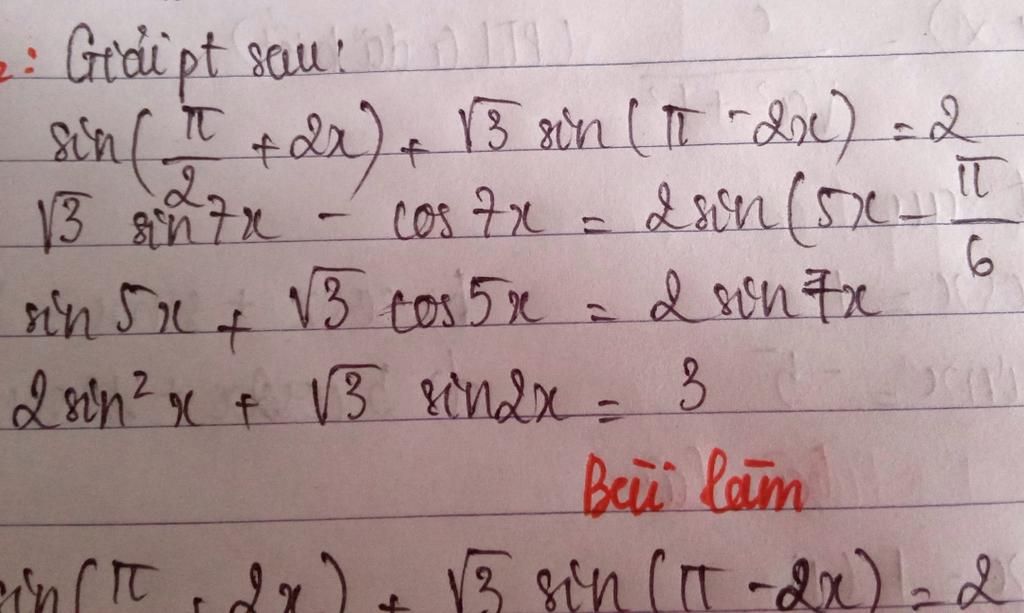 2: Giải pt sau:
sin(π/2 + 2x) + √3 sin(π - 2x) = 2
√3 sin7x - cos7x = 2sin(5x - π/6
sin5x + √3 cos5x = 2sin7x
2sin²x + √3 sin2x = 3
Bài làm
in(π + 2x) + √3 sin(π - 2x) = 2